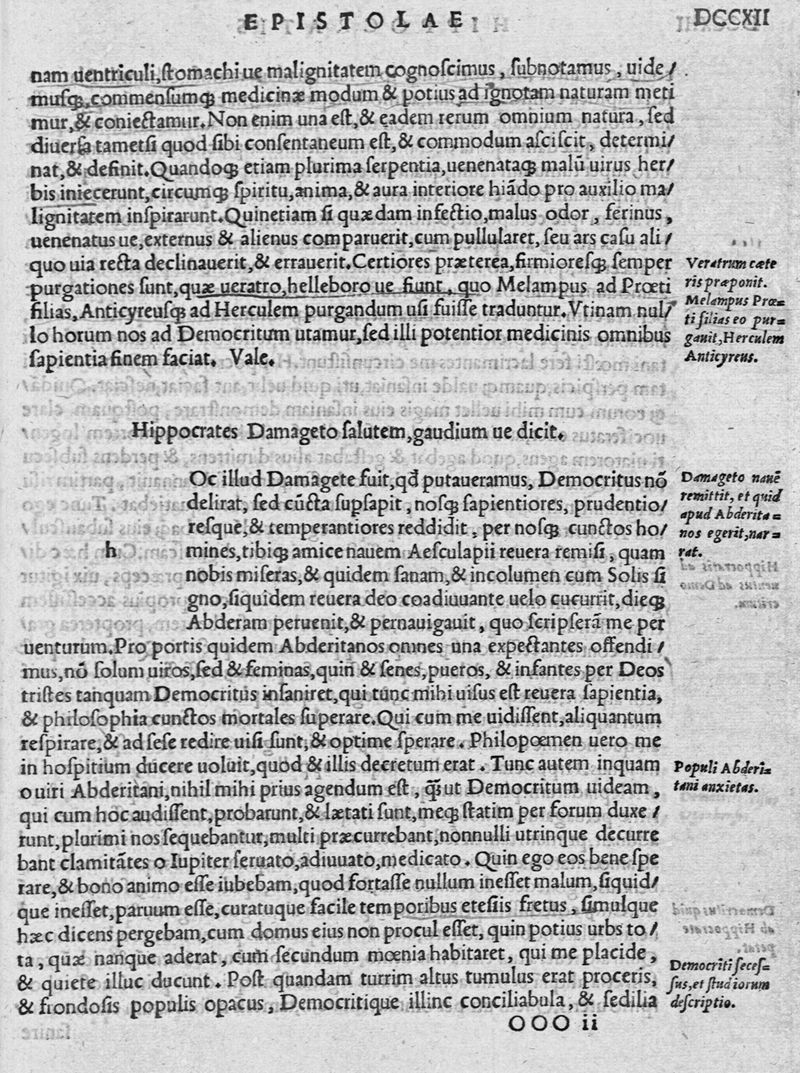 EPISTOLAE. DCCXII
nam uentriculi,ſtomachi ue malignitatem cognoſcimus, ſubnotamus, uide/
muſq;,commenſumq; medicinæ modum & potius ad ignotam naturam meti
mur,& coniectamur.Non enim una eſt,& eadem rerum omnium natura, ſed
diuerſa tametſi quod ſibi conſentaneum eſt,& commodum aſciſcit, determi/
nat,& definit.Quandoq; etiam plurima ſerpentia,uenenataq; malū uirus her/
bis iniecerunt,circumq; ſpiritu,anima,& aura interiore hiādo pro auxilio ma/
lignitatem inſpirarunt.Quinetiam ſi quædam infectio,malus odor, ferinus,
uenenatus ue,externus & alienus comparuerit,cum pullularet, ſeu ars caſu ali/
quo uia recta declinauerit,& errauerit.Certiores præterea,firmioreſq; ſemper
purgationes ſunt,quæ ueratro,helleboro ue fiunt, quo Melampus ad Prœti
filias,Anticyreuſq; ad Herculem purgandum uſi fuiſſe traduntur.Vtinam nul/
lo horum nos ad Democritum utamur,ſed illi potentior medicinis omnibus
ſapientia finem faciat. Vale.
Veratrum cæte
ris præponit.
Melampus Prœ=
ti filias eo pur=
gauit,Herculem
Anticyreus.
Hippocrates Damageto ſalutem,gaudium ue dicit.
h Oc illud Damagete fuit,qđ putaueramus, Democritus nō
delirat, ſed cūcta ſupſapit, noſq; ſapientiores, prudentio/
reſque,& temperantiores reddidit, per noſq; cunctos ho/
mines,tibiq; amice nauem Aeſculapii reuera remiſi, quam
nobis miſeras,& quidem ſanam,& incolumen cum Solis ſi
gno,ſiquidem reuera deo coadiuuante uelo cucurrit,dieq;
Abderam peruenit,& pernauigauit, quo ſcripſerā me per
uenturum.Pro portis quidem Abderitanos omnes una expectantes offendi/
mus,nō ſolum uiros,ſed & feminas,quin & ſenes,pueros, & infantes per Deos
triſtes tanquam Democritus inſaniret,qui tunc mihi uiſus eſt reuera ſapientia,
& philoſophia cunctos mortales ſuperare.Qui cum me uidiſſent,aliquantum
reſpirare,& ad ſeſe redire uiſi ſunt,& optime ſperare. Philopœmen uero me
in hoſpitium ducere uoluit,quod & illis decretum erat. Tunc autem inquam
o uiri Abderitani,nihil mihi prius agendum eſt, q̄ſ ut Democritum uideam,
qui cum hoc audiſſent,probarunt,& lætati ſunt,meq; ſtatim per forum duxe/
runt,plurimi nos ſequebantur,multi præcurrebant,nonnulli utrinque decurre
bant clamitātes o Iupiter ſeruato,adiuuato,medicato. Quin ego eos bene ſpe
rare,& bono animo eſſe iubebam,quod fortaſſe nullum ineſſet malum,ſiquid/
que ineſſet,paruum eſſe,curatuque facile temporibus eteſiis fretus, ſimulque
hæc dicens pergebam,cum domus eius non procul eſſet, quin potius urbs to/
ta, quæ nanque aderat, cum ſecundum mœnia habitaret, qui me placide,
& quiete illuc ducunt. Poſt quandam turrim altus tumulus erat proceris,
& frondoſis populis opacus, Democritique illinc conciliabula, & ſedilia
Damageto nauē
remittit, et quid
apud Abderita=
nos egerit,nar=
rat.
Populi Abderi=
tani anxietas.
Democriti ſeceſ=
ſus,et ſtudiorum
deſcriptio.
OOO ii